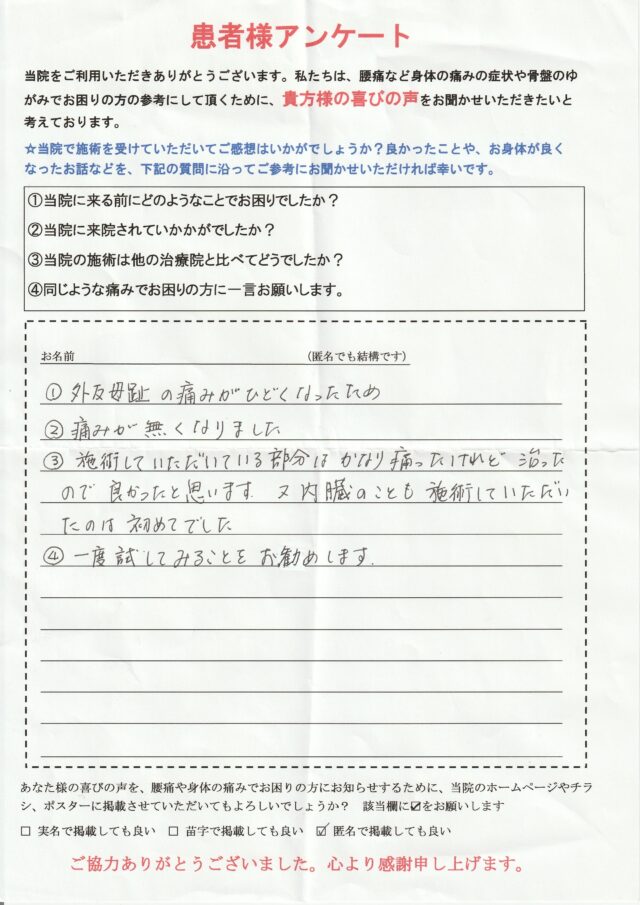 患者様アンケート
当院をご利用いただきありがとうございます。私たちは、腰痛など身体の痛みの症状や骨盤のゆ
がみでお困りの方の参考にして頂くために、貴方様の喜びの声をお聞かせいただきたいと
考えております。
☆当院で施術を受けていただいてご感想はいかがでしょうか？良かったことや、お身体が良く
なったお話などを、下記の質問に沿ってご参考にお聞かせいただければ幸いです。
①当院に来る前にどのようなことでお困りでしたか？
②当院に来院されていかかがでしたか？
③当院の施術は他の治療院と比べてどうでしたか？
④同じような痛みでお困りの方に一言お願いします。
お名前 (匿名でも結構です)
① 外反母趾 の痛みがひどくなったため
② 痛みが 無くなりました
③ 施術していただいている部分は かなり痛ったけれど 治った
ので 良かったと思います 又内臓のことも 施術していただい
たのは 初めてでした
④ 一度試してみることを お勧めします.
あなた様の喜びの声を、腰痛や身体の痛みでお困りの方にお知らせするために、当院のホームページやチラ
シ、ポスターに掲載させていただいてもよろしいでしょうか？ 該当欄に☑をお願いします
☐ 実名で掲載しても良い ☐ 苗字で掲載しても良い ☑ 匿名で掲載しても良い
ご協力ありがとうございました。心より感謝申し上げます。